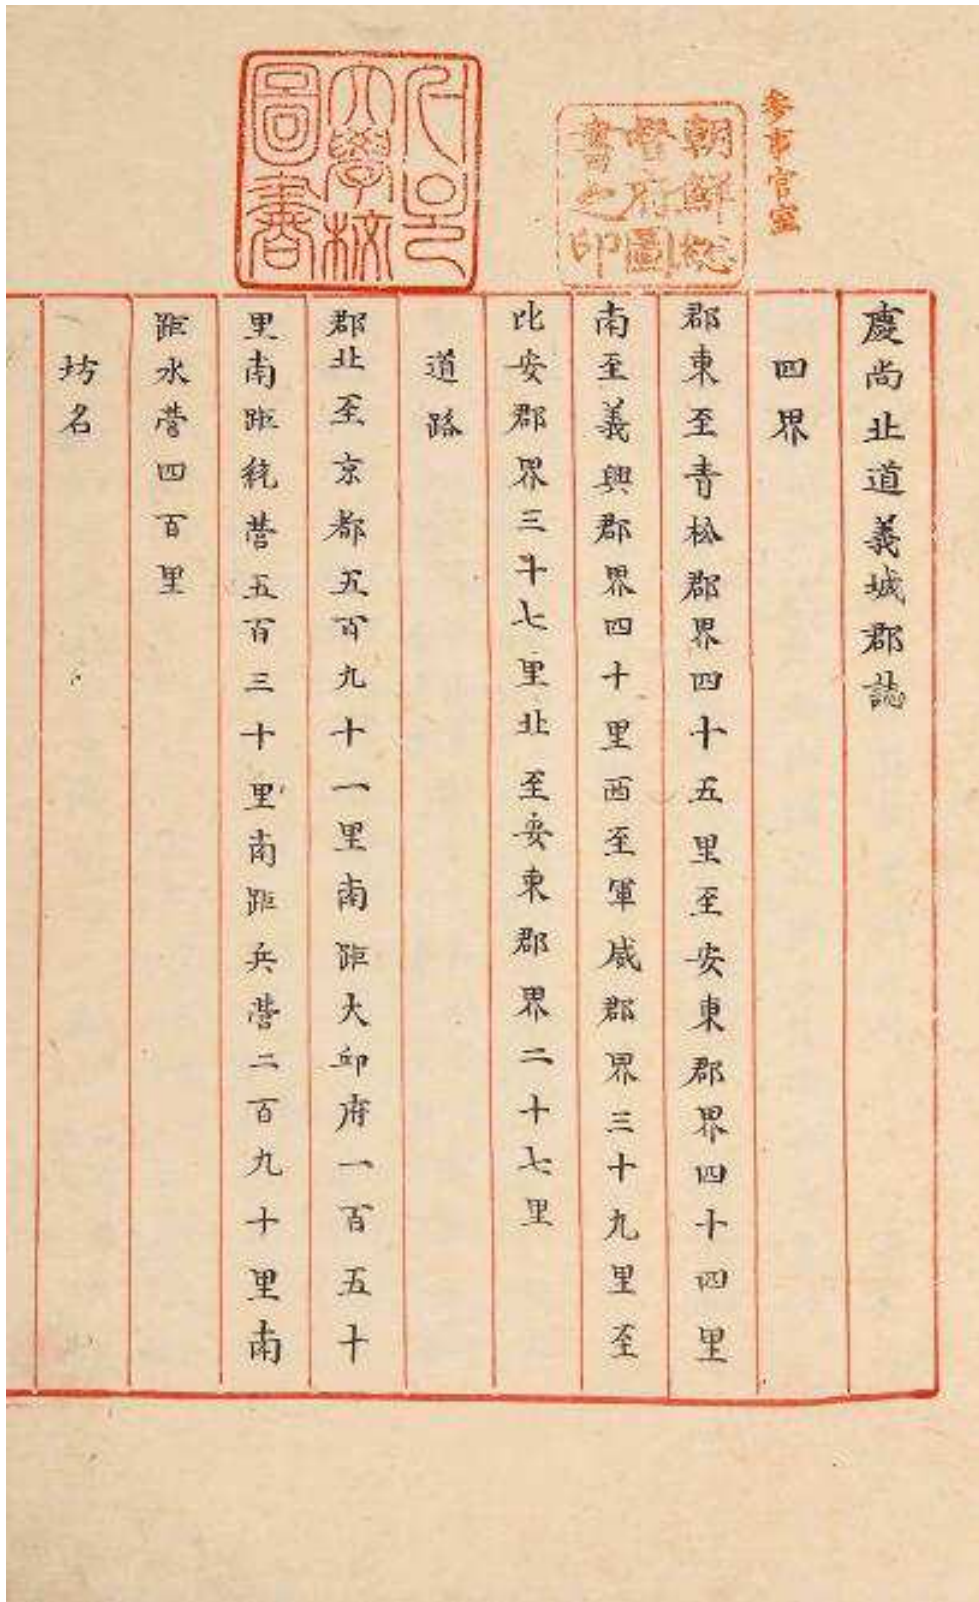 参事官室
朝鮮総
督府圖
書之印
서울
大學校
圖書
慶尚北道義城郡誌
四界
郡東至青松郡界四十五里至安東郡界四十四里
南至義興郡界四十里西至軍威郡界三十九里至
比安郡界三斗七里北至安東郡界二十七里
道路
郡北至京都五百九十一里南距大邱府一百五十
里南距統營五百三十里南距兵營二百九十里南
距水營四百里
坊名